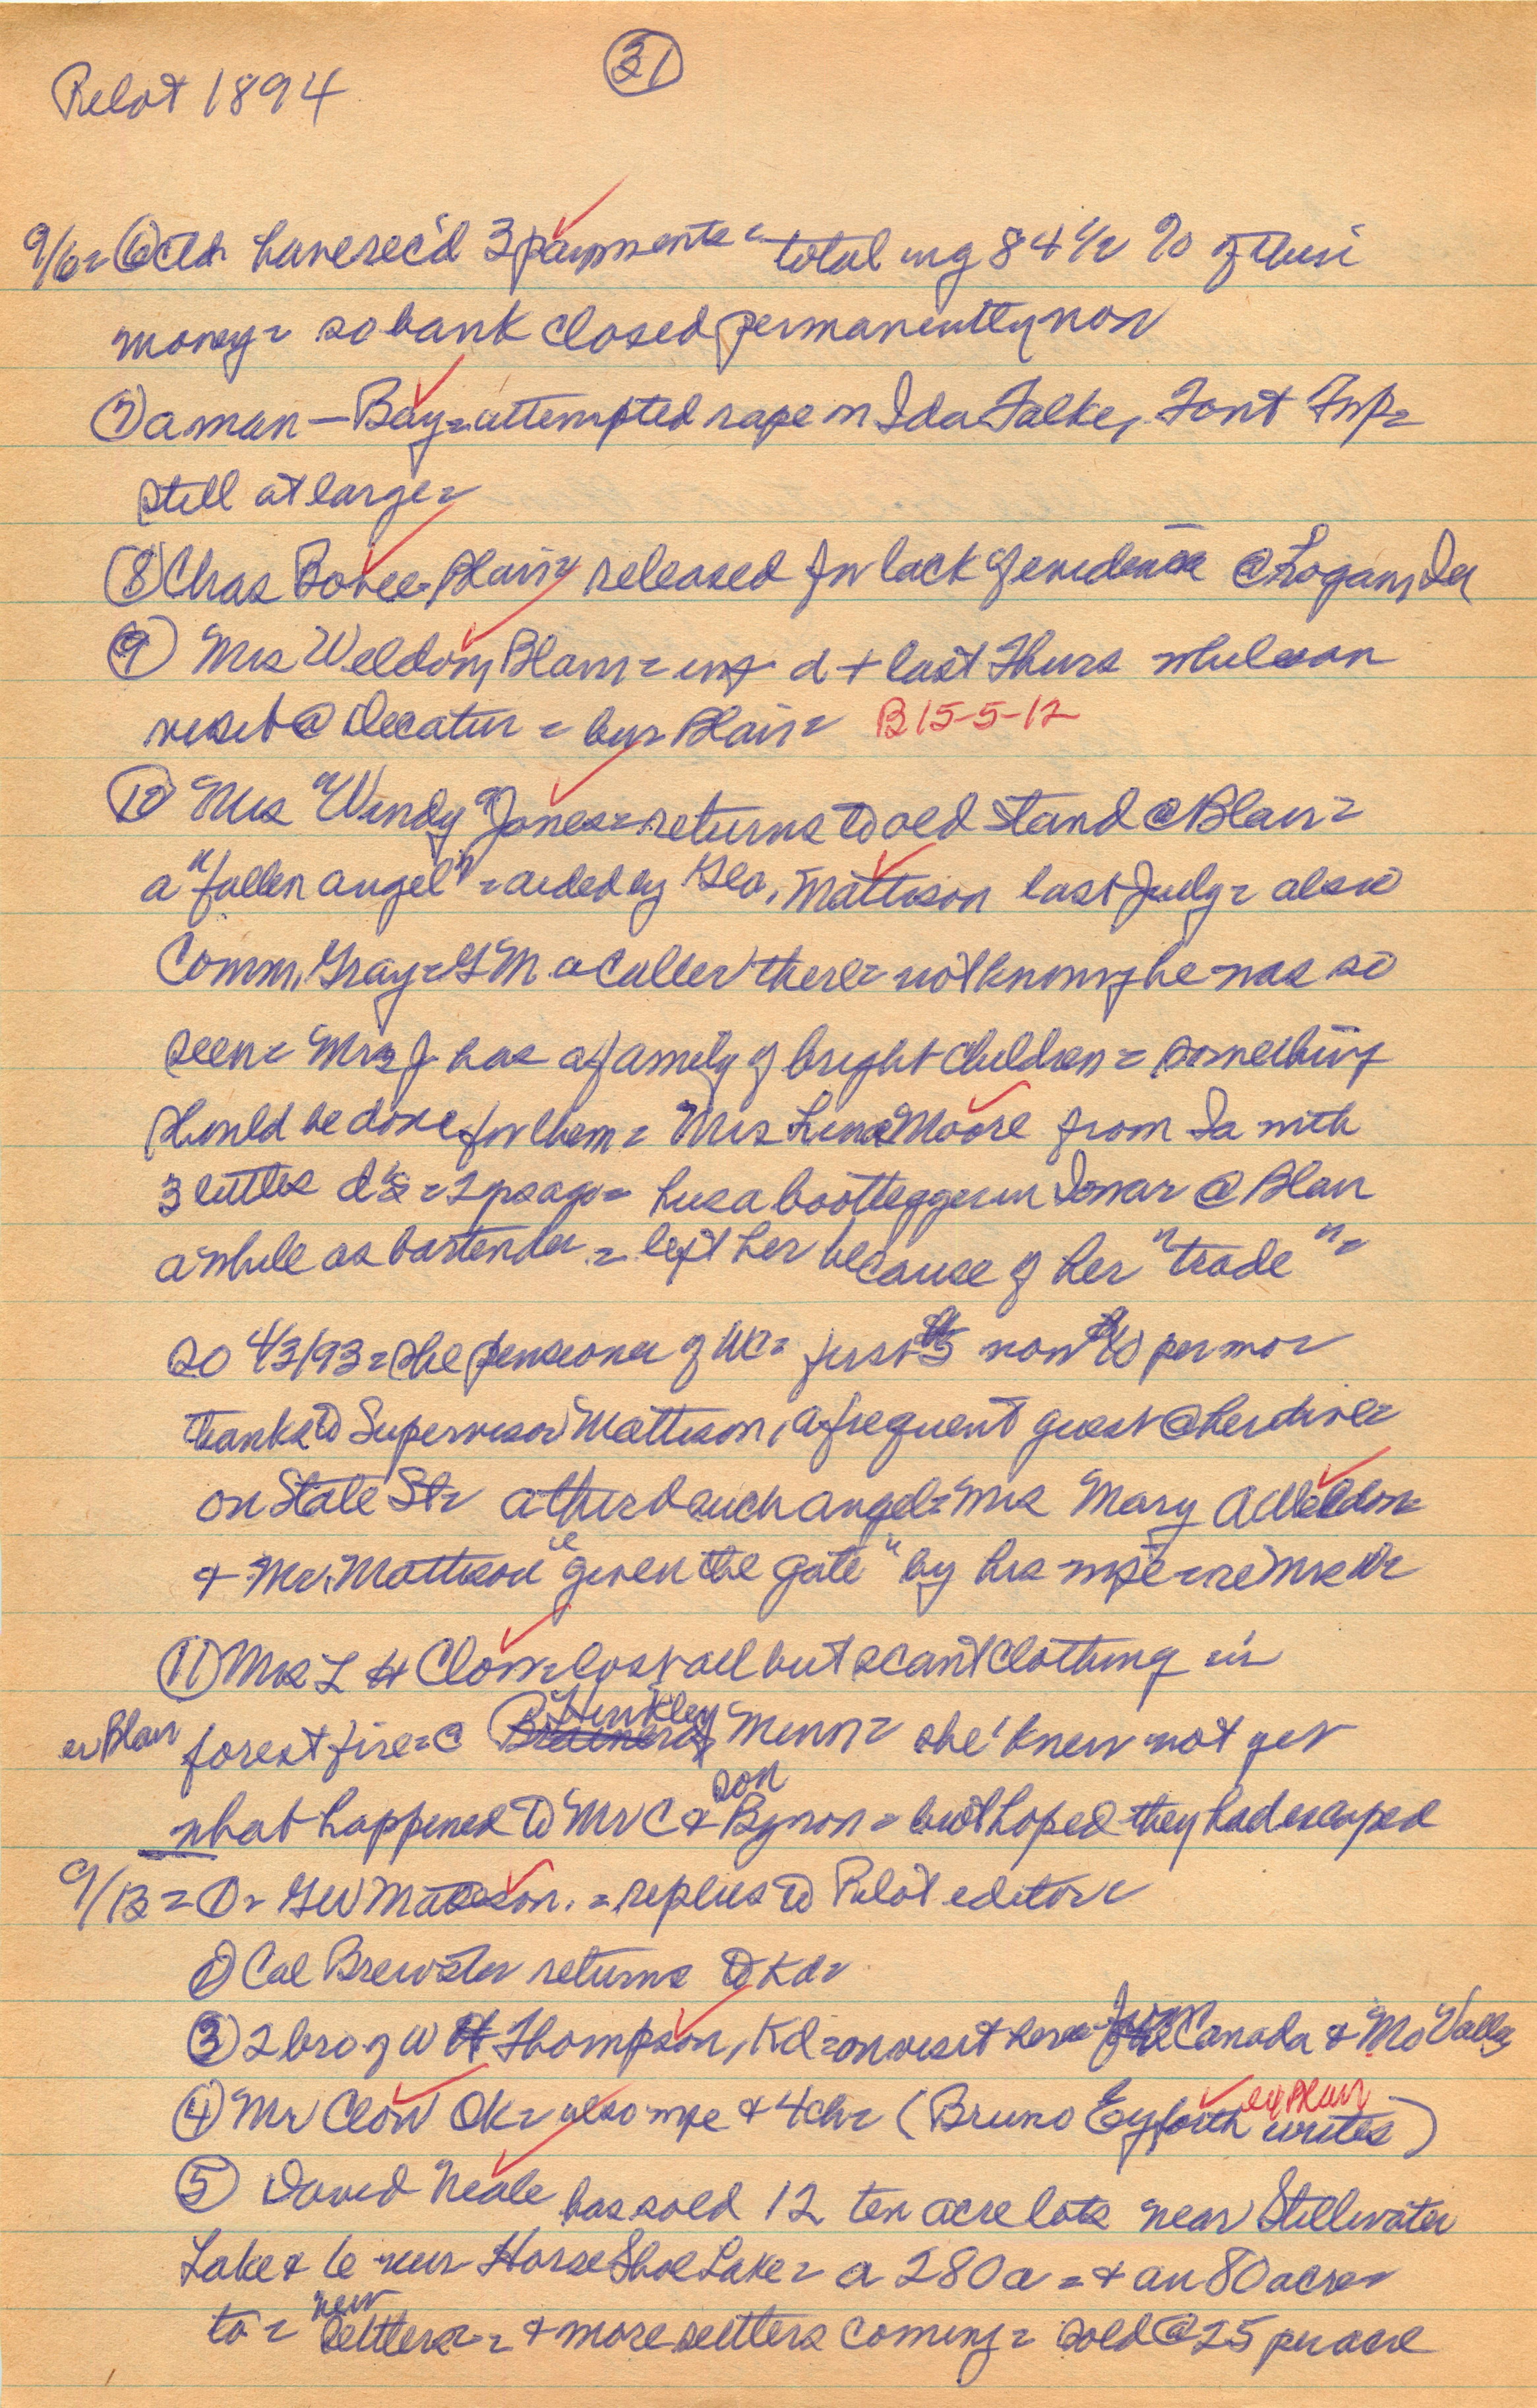 31
Pilot 1894
9/6= ⑥ have rec'd 3 payments= totaling 84½ % of their
money= so bank closed permanently now
⑦ a man — Bay= attempted rape on Ida Falke, Font Twp=
still at large=
⑧ Chas Bovee= Blair= released for lack of evidence @ Logan, Ia
⑨ Mrs Weldon, Blair= inf d + last Thurs while on
visit @ Decatur = bur Blair= B 15-5-12
⑩ Mrs "Windy" Jones= returns to old stand @ Blair=
a "fallen angel"= aided by Geo. Mattison last July= also
Comm. Gray= GM a caller there= not knowing he was so
seen= Mrs J has a family of bright children= something
should be done for them= Mrs Lena Moore from Ia with
3 little d's= 2 yrs ago= hus a bootlegger in Iowa @ Blair
a while as bartender= left her because of her "trade"=
so 4/3/93= she pensioner of WC= first 5 now 10 per mo=
thanks to Supervisor Mattison, a frequent guest @ her dive=
on State St= a third such angel= Mrs Mary A Weldon=
& Mr. Mattison "given the gate" by his wife=
⑪ Mrs L H Clow= lost all but scant clothing in
ex Blair forest fire= @ Hinkley Minn= she knew not yet
what happened to Mr C & son Byron= but hoped they had escaped
9/13= ①= GW Mattison.= replies to Pilot editor=
② Cal Brewster returns to Kd=
③ 2 bro of W H Thompson, Kd= on visit here from Canada & Mo Valley
④ Mr Clow OK= also wife & 4 ch= (Bruno Eyforth ex Blair writes)
⑤ David Neale has sold 12 ten acre lots near Stillwater
Lake & 6 near Horse Shoe Lake= a 280 a= & an 80 acre=
to= new settlers= & more settlers coming= sold @ 25 per acre